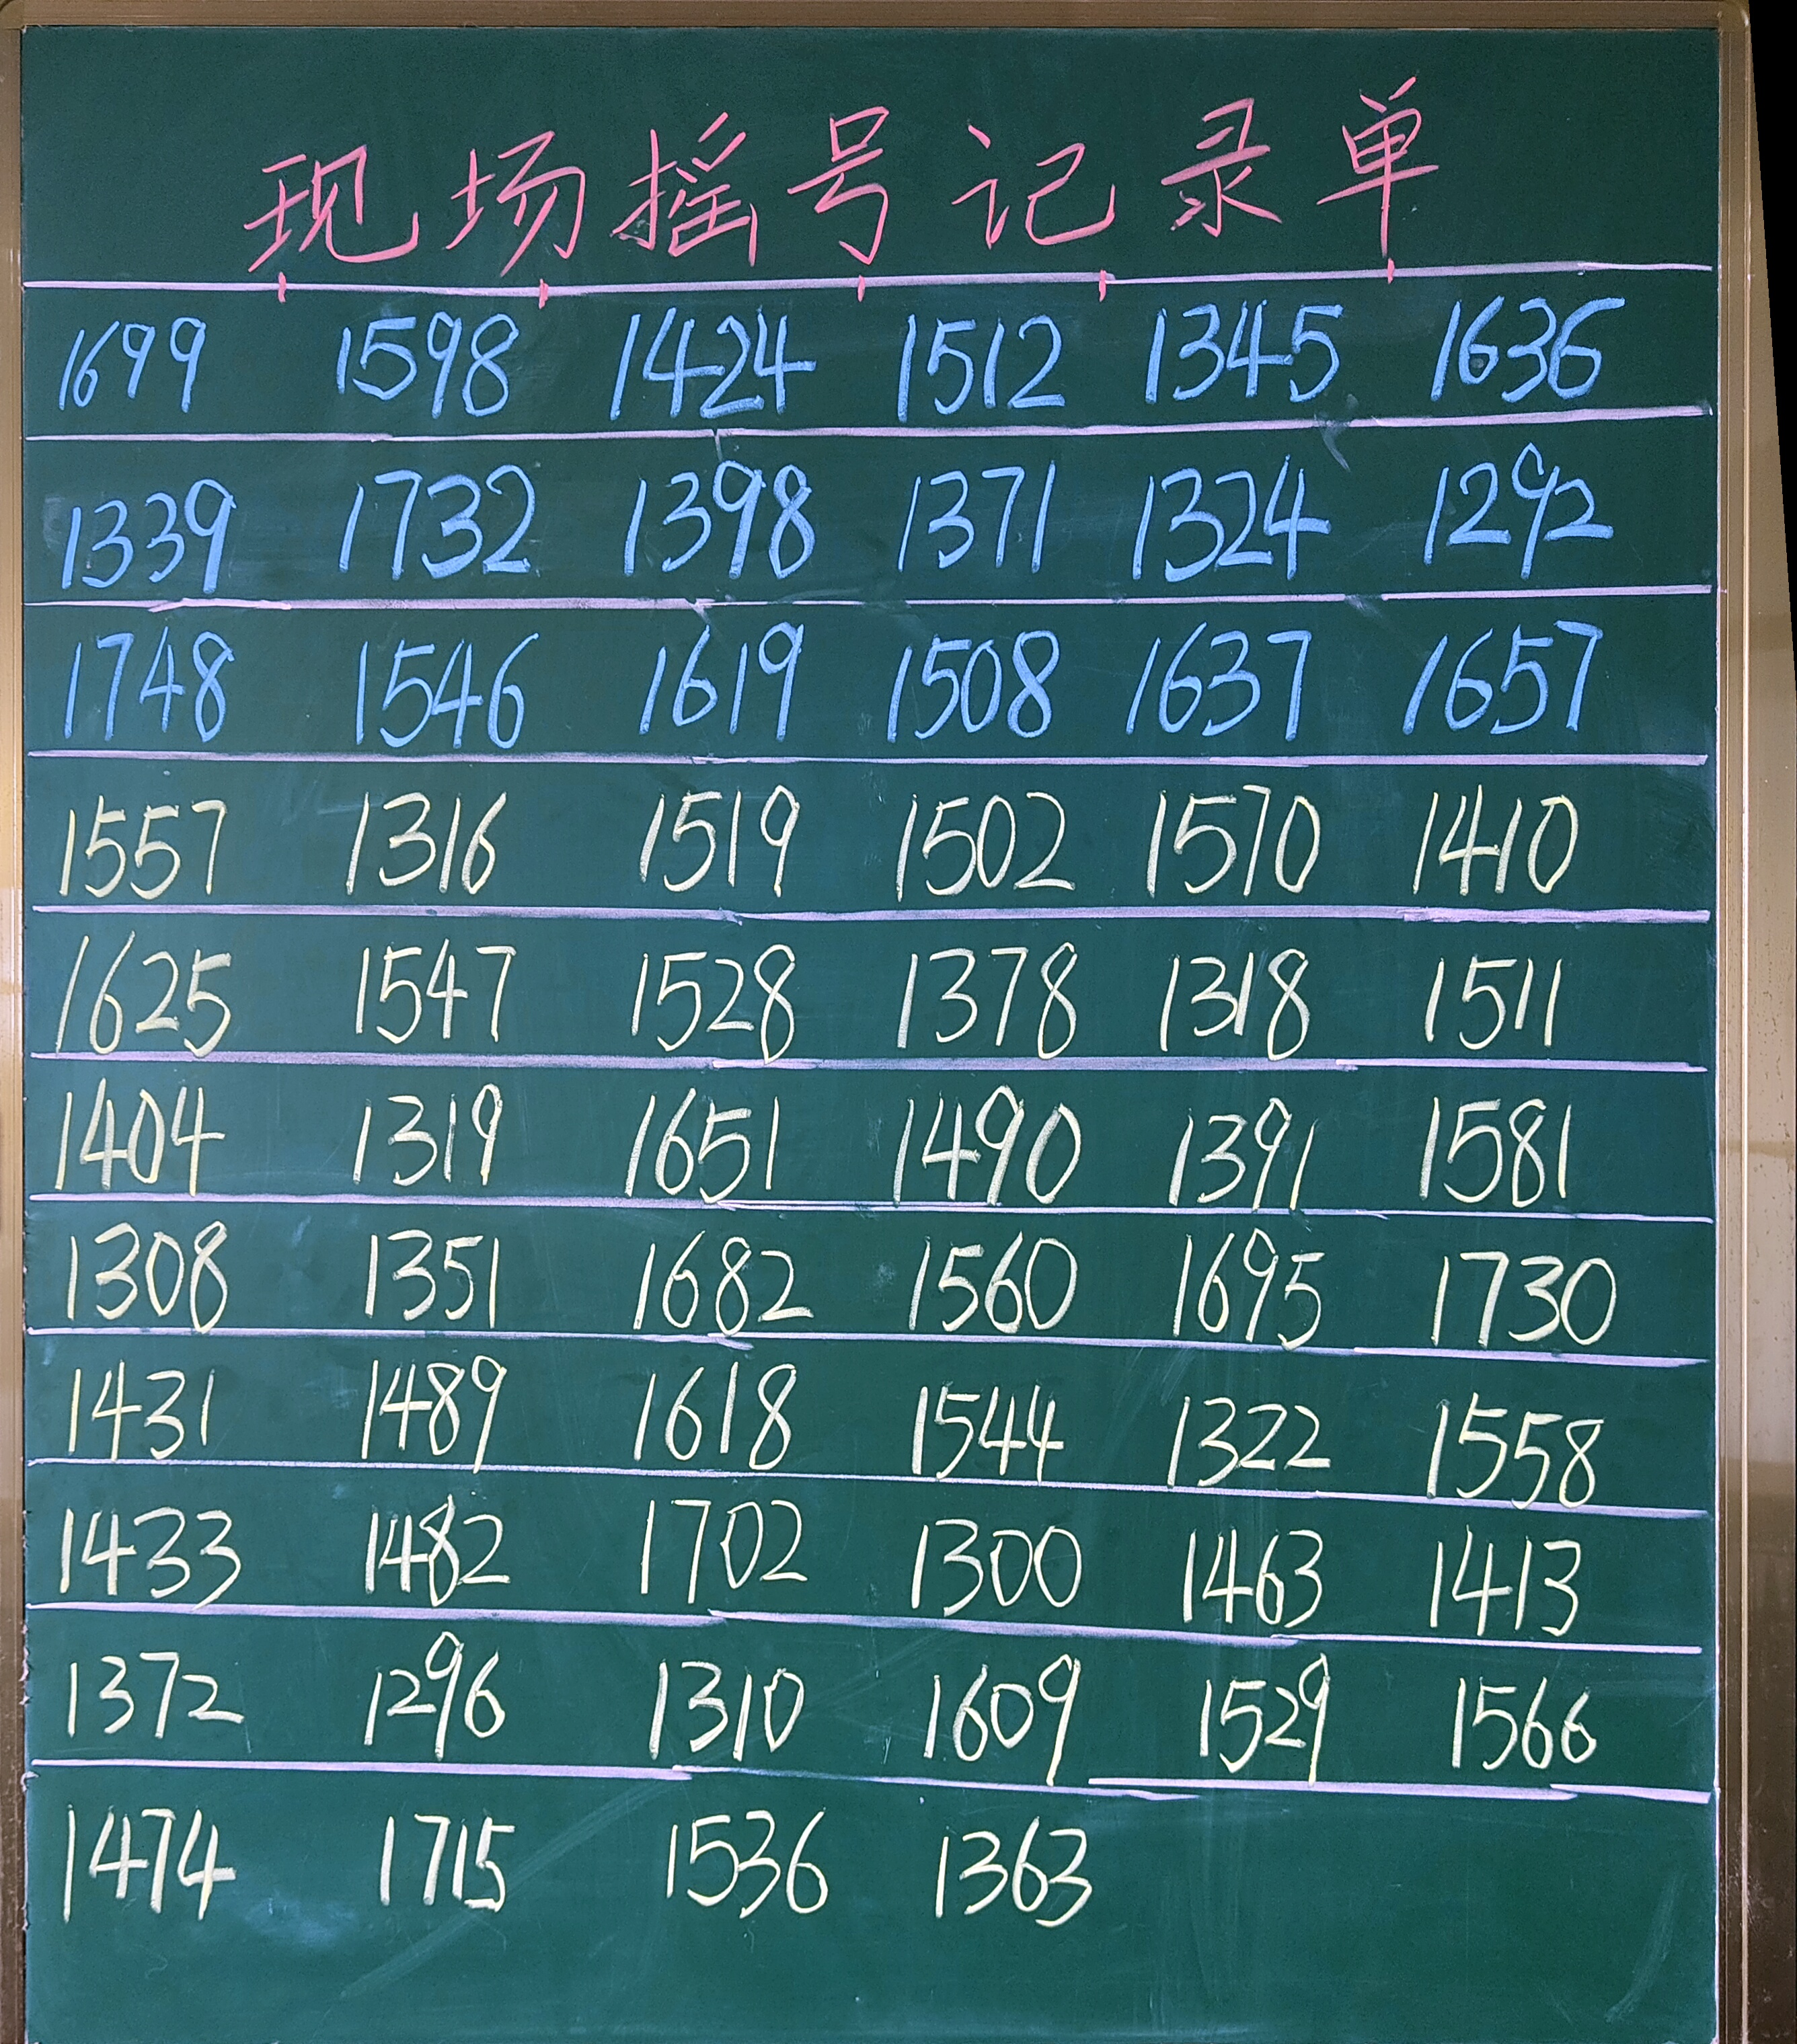 现场摇号记录单
1699 1598 1424 1512 1345 1636
1339 1732 1398 1371 1324 1292
1748 1546 1619 1508 1637 1657
1557 1316 1519 1502 1570 1410
1625 1547 1528 1378 1318 1511
1404 1319 1651 1490 1391 1581
1308 1351 1682 1560 1695 1730
1431 1489 1618 1544 1322 1558
1433 1482 1702 1300 1463 1413
1372 1296 1310 1609 1529 1566
1474 1715 1536 1363